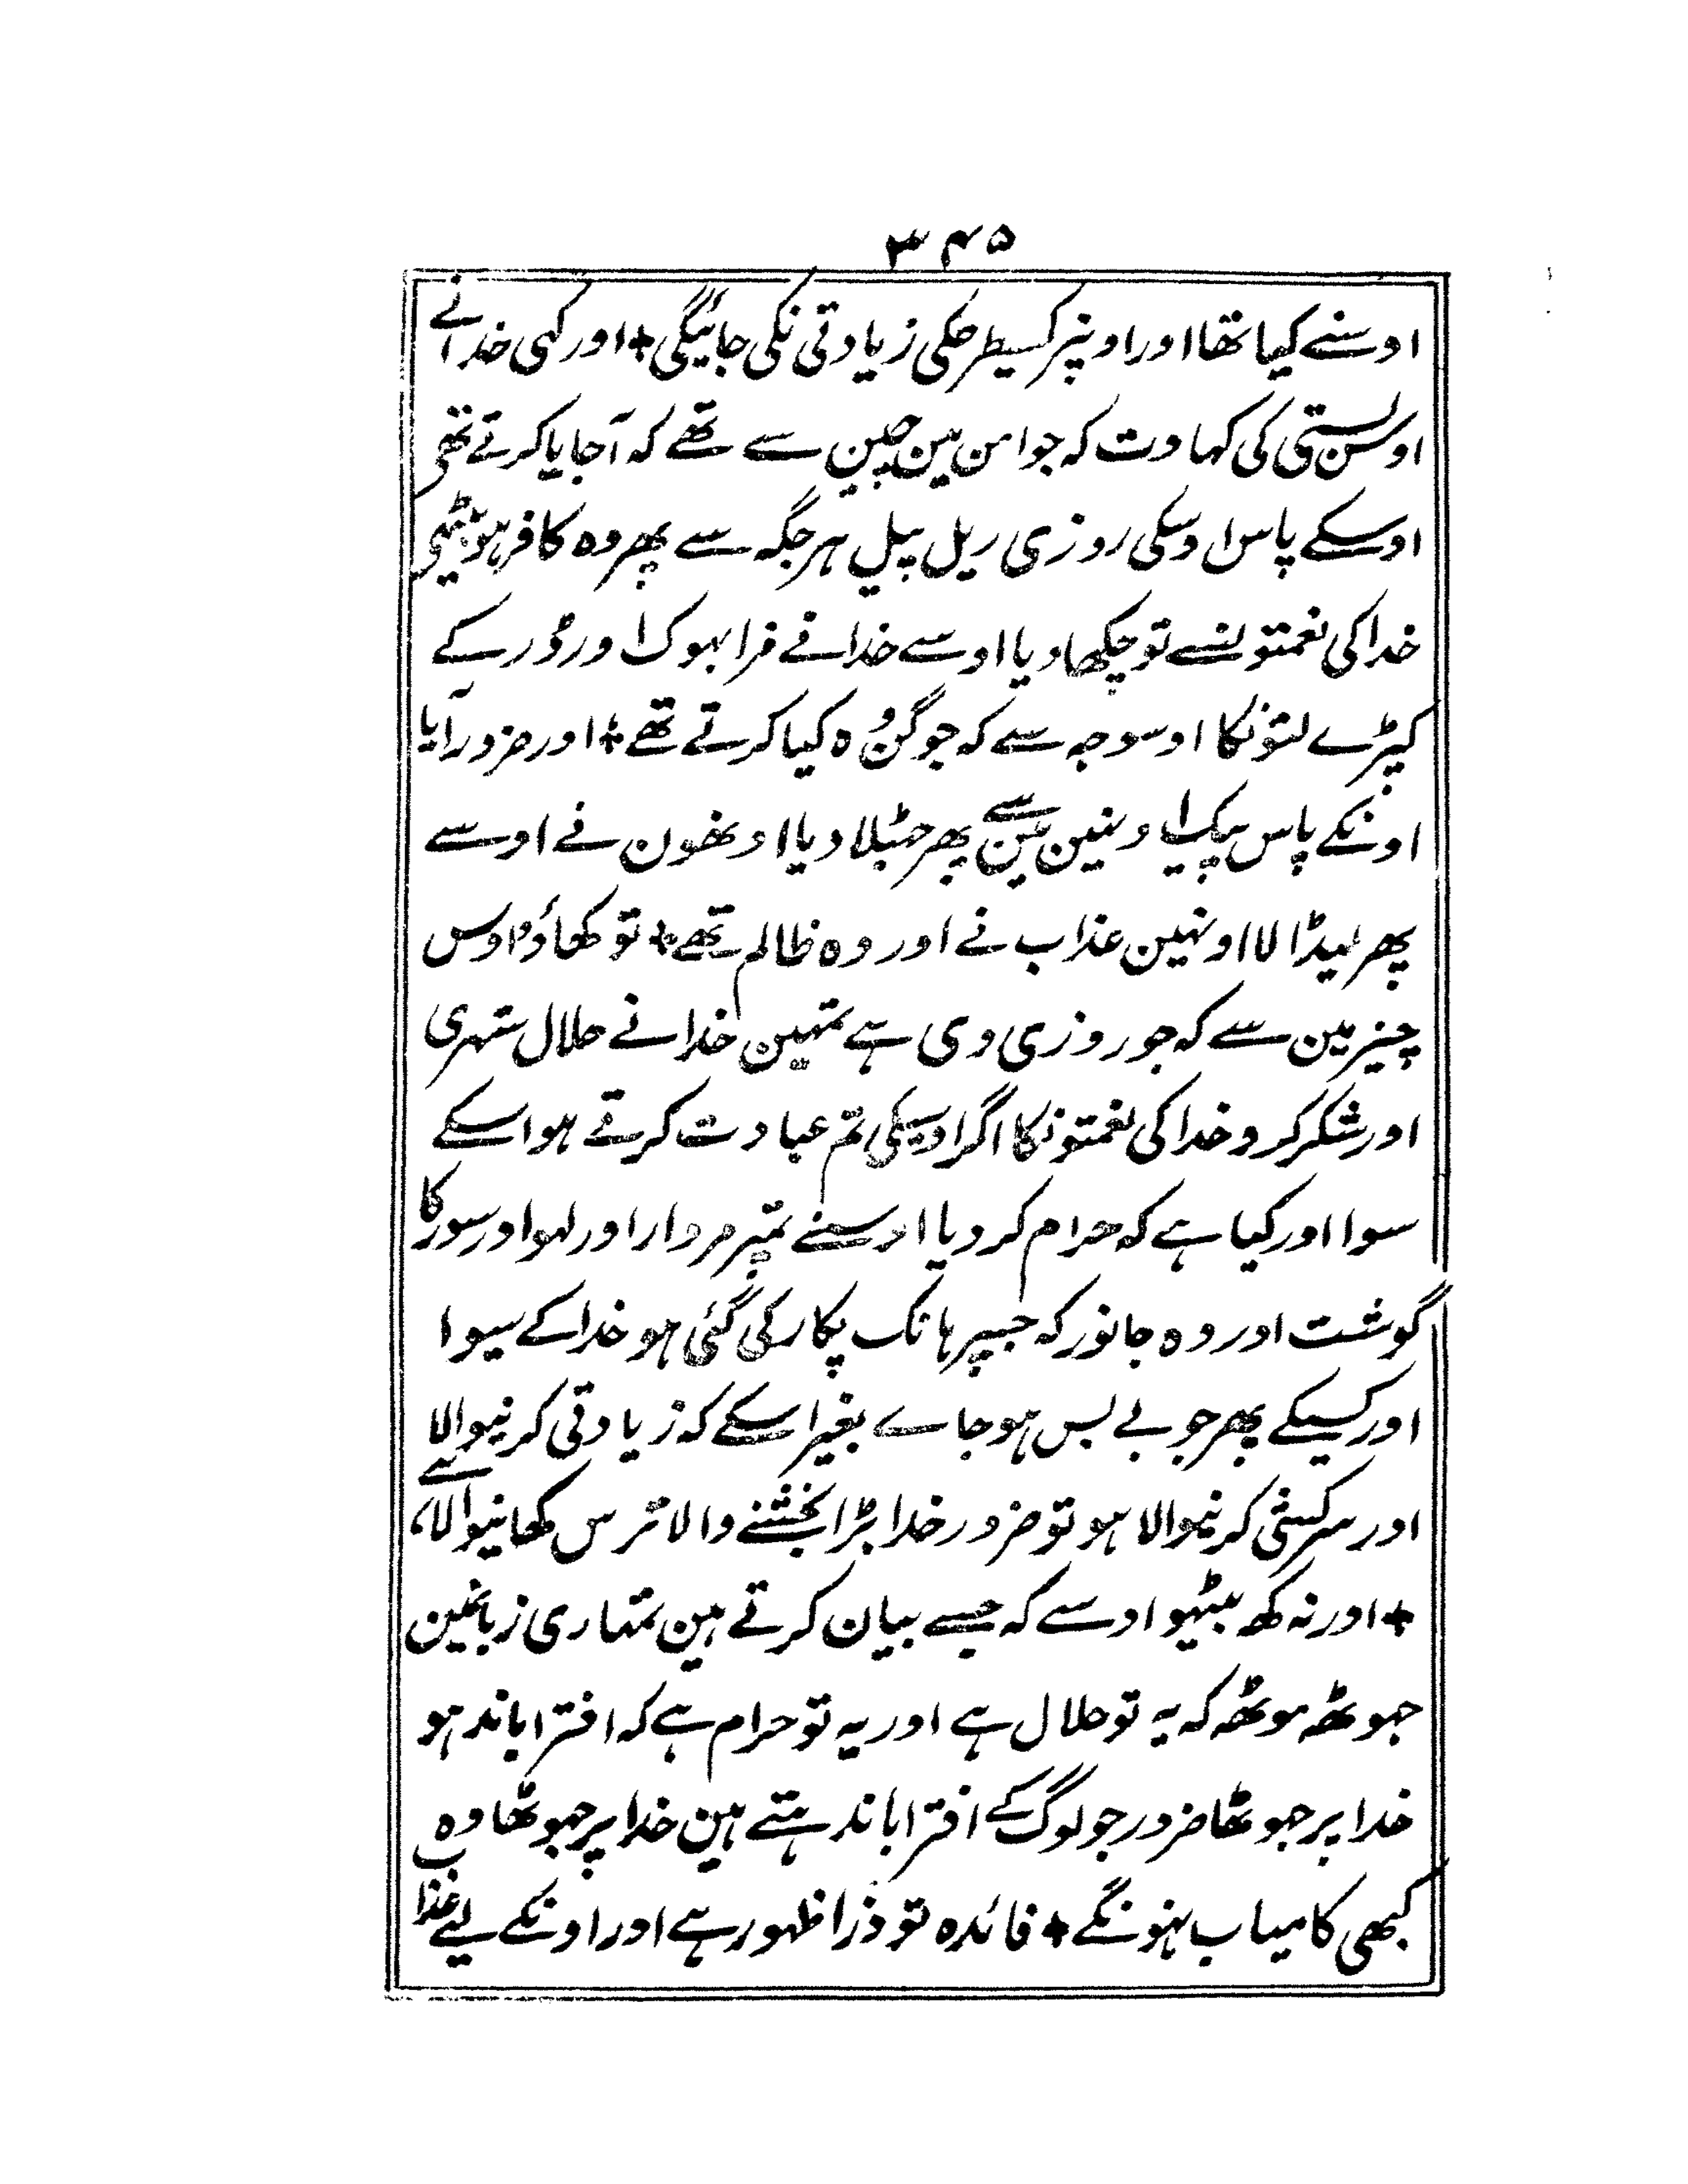 ۳۴۵
اوسنے کیا تھا اور اونپر کسیطرحکی زیادتی نکی جائیگی + اور کہی خدا نے
اوس بستی کی کہاوت کہ جو امن مین چین سے تھے کہ آجایا کرتے تھی
اوسکے پاس اوسکی روزی ریل پیل ہر جگہ سے پھر وہ کافر ہو بیٹھی
خدا کی نعمتونسے تو چکھا دیا اوسے خدا نے مزا بہوک اور ڈر کے
کپڑے لتونکا اوسوجہ سے کہ جو گن وہ کیا کرتے تھے + اور ضرور آیا
اونکے پاس پیک اونہین مین سے پھر جھٹلا دیا اونھون نے اوسے
پھر لیڈالا اونہین عذاب نے اور وہ ظالم تھے + تو کھاؤ اوس
چیز مین سے کہ جو روزی دی ہے تمہین خدا نے حلال ستہری
اور شکر کرو خدا کی نعمتونکا اگر اوسیکی تم عبادت کرتے ہو اسکے
سوا اور کیا ہے کہ حرام کر دیا اوسنے تمپر مردار اور لہو اور سور کا
گوشت اور وہ جانور کہ جسپر ہانک پکار کی گئی ہو خدا کے سیوا
اور کسیکے پھر جو بے بس ہو جاے بغیر اسکے کہ زیادتی کرنیوالا
اور سرکشی کرنیوالا ہو تو ضرور خدا بڑا بخشنے والا ترس کھانیوالا ہے
+ اور نہ کھ بیٹہو اوسے کہ جسے بیان کرتے ہین تمہاری زبانین
جہوٹھ موٹھ کہ یہ تو حلال ہے اور یہ تو حرام ہے کہ افترا باندہو
خدا پر جہوٹھا ضرور جو لوگ کے افترا باندہتے ہین خدا پر جہوٹھا وہ
کبھی کامیاب نہونگے + فائدہ تو ذرا ظہور ہے اور اونکے لیے عذاب